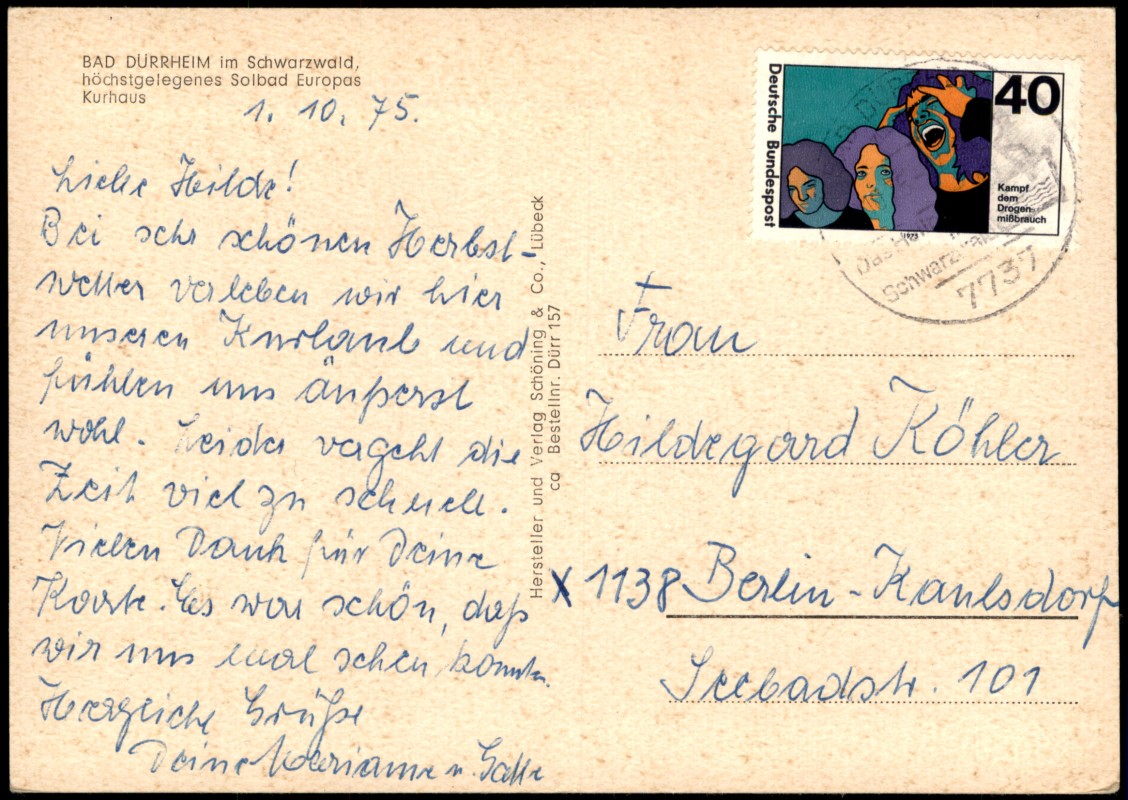 BAD DÜRRHEIM im Schwarzwald,
höchstgelegenes Solbad Europas
Kurhaus
1. 10. 75.
Liebe Hilde!
Bei sehr schönen Herbst-
wetter verleben wir hier
unseren Kurlaub und
fühlen uns äußerst
wohl. Leider vergeht die
Zeit viel zu schnell.
Vielen Dank für Deine
Karte. Es war schön, daß
wir uns mal sehen konnten.
Herzliche Grüße
Deine Marianne u.
Hersteller und Verlag Schöning & Co., Lübeck
ca Bestellnr. Dürr 157
Deutsche Bundespost
40
Kampf
dem
Drogen-
mißbrauch
1975
Das
Schwarzwal
7737
Frau
Hildegard Köhler
X 1138 Berlin-Kaulsdorf
Seebadstr. 101